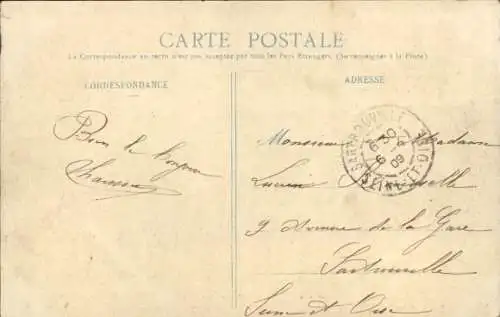 CARTE POSTALE
La Correspondance au recto n'est pas acceptée par tous les Pays Étrangers. (Se renseigner à la Poste)
CORRESPONDANCE
ADRESSE
SARTROUVILLE
6 30
6 -7
09
SEINE-ET-OISE
Monsieur Madame
Bon de
Lucien
9 Avenue de la Gare
Sartrouville
Seine et Oise